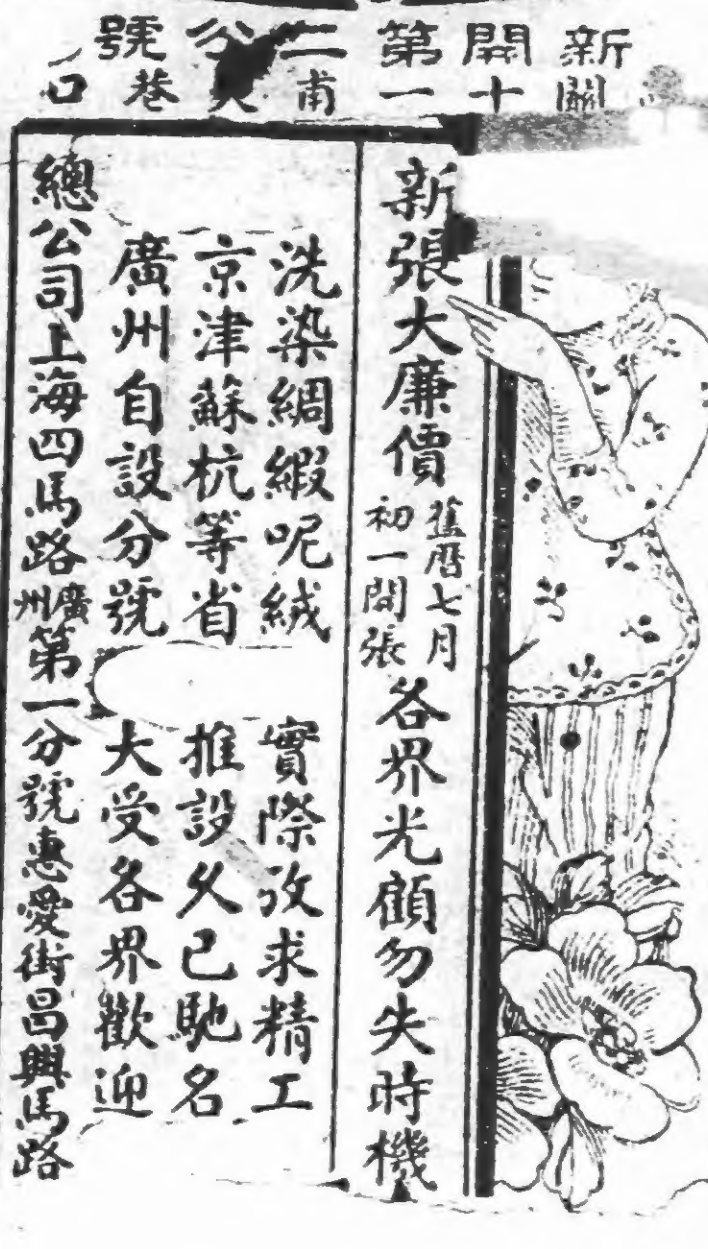 新開第二分號
關十一甫巷口
新張大廉價
舊曆七月
初一開張
各界光顧勿失時機
洗染綢緞呢絨 實際攷求精工
京津蘇杭等省 推設久已馳名
廣州自設分號 大受各界歡迎
總公司上海四馬路廣州第一分號惠愛街昌興馬路